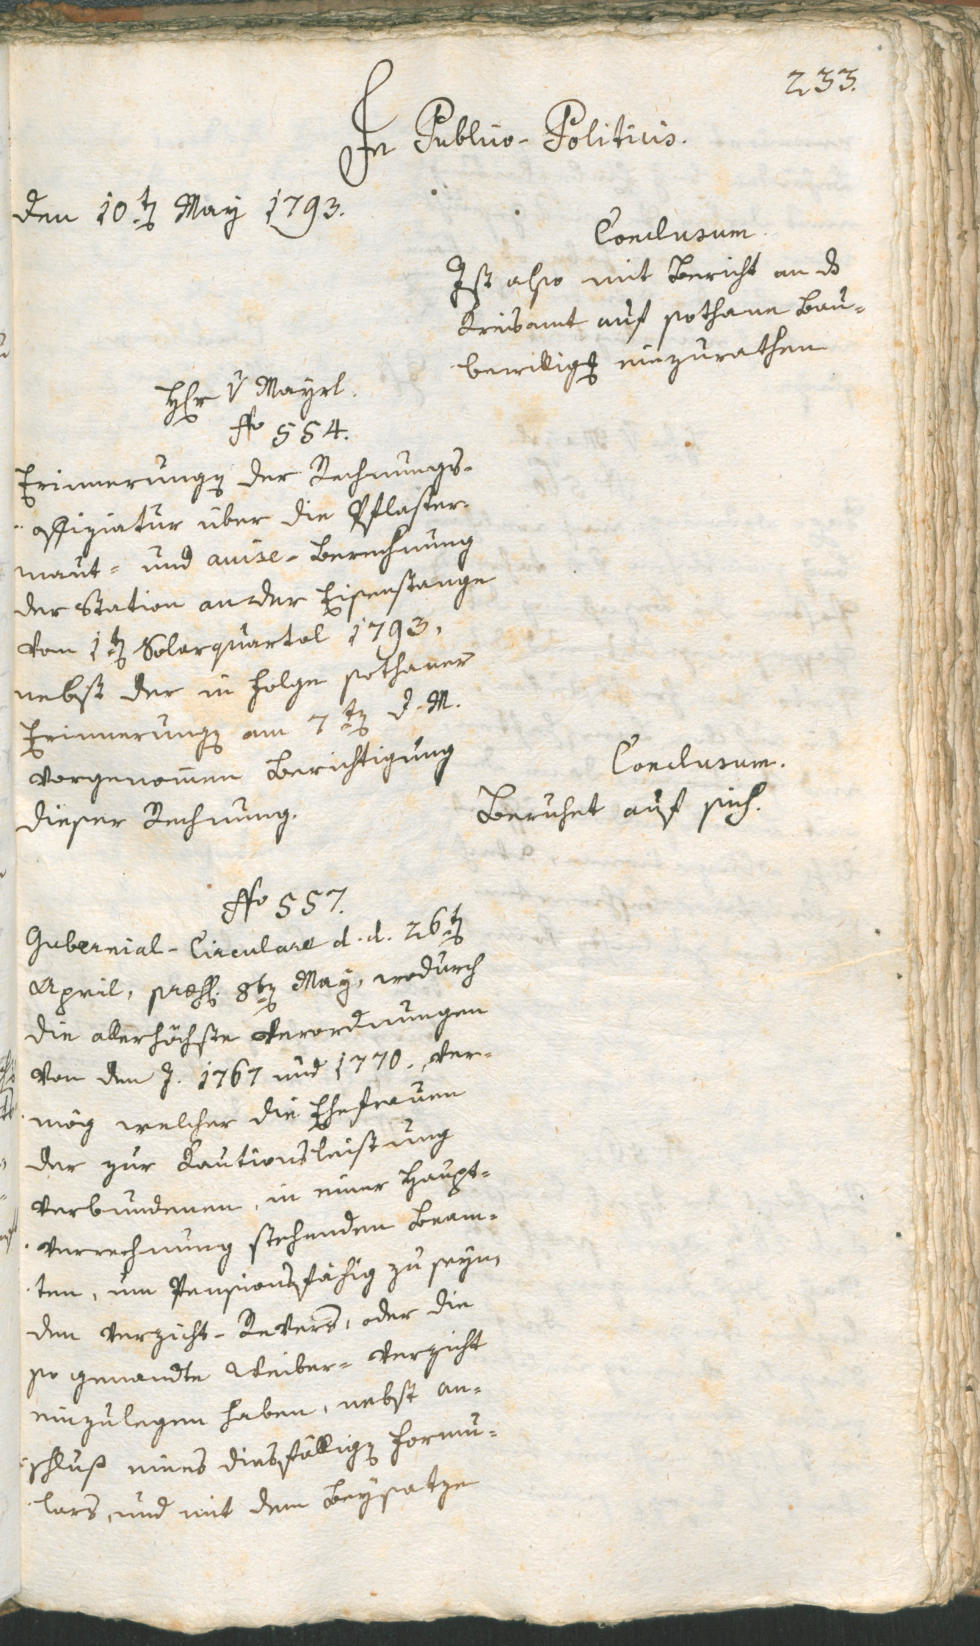 233.
In Publico-Politicis.
den 10.t: May 1793.
Conclusum.
Ist also mit Bericht an ds
Kreisamt auf sothane Bau=
bewillig: einzurathen
H: v Mayrl.
No 554.
Erinnerung: der Rechnungs-
offiziatur über die Pflaster-
maut- und avise-Berechnung
der Station an der Eisenstange
vom 1t: Solarquartal 1793,
nebst der in Folge sothaner
Erinnerung: am 7t: d. M.
vorgenom̄en Berichtigung
dieser Rechnung.
Conclusum.
Beruhet auf sich.
No 557.
Gubernial-Circulare d. d. 26t:
April, præs: 8t: May, wodurch
die allerhöchste Verordnungen
von den J. 1767 und 1770., ver-
mög welcher die Ehefrauen
der zur Kautionsleistung
verbundenen, in einer Haupt=
verrechnung stehenden Beam=
ten, um Pensionsfähig zu seyn,
den Verzicht-Revers, oder die
so genandte Weiber- Verzicht
einzulegen haben, nebst an=
schluß eines diesfällig: Formu=
lars, und mit dem Beysatze